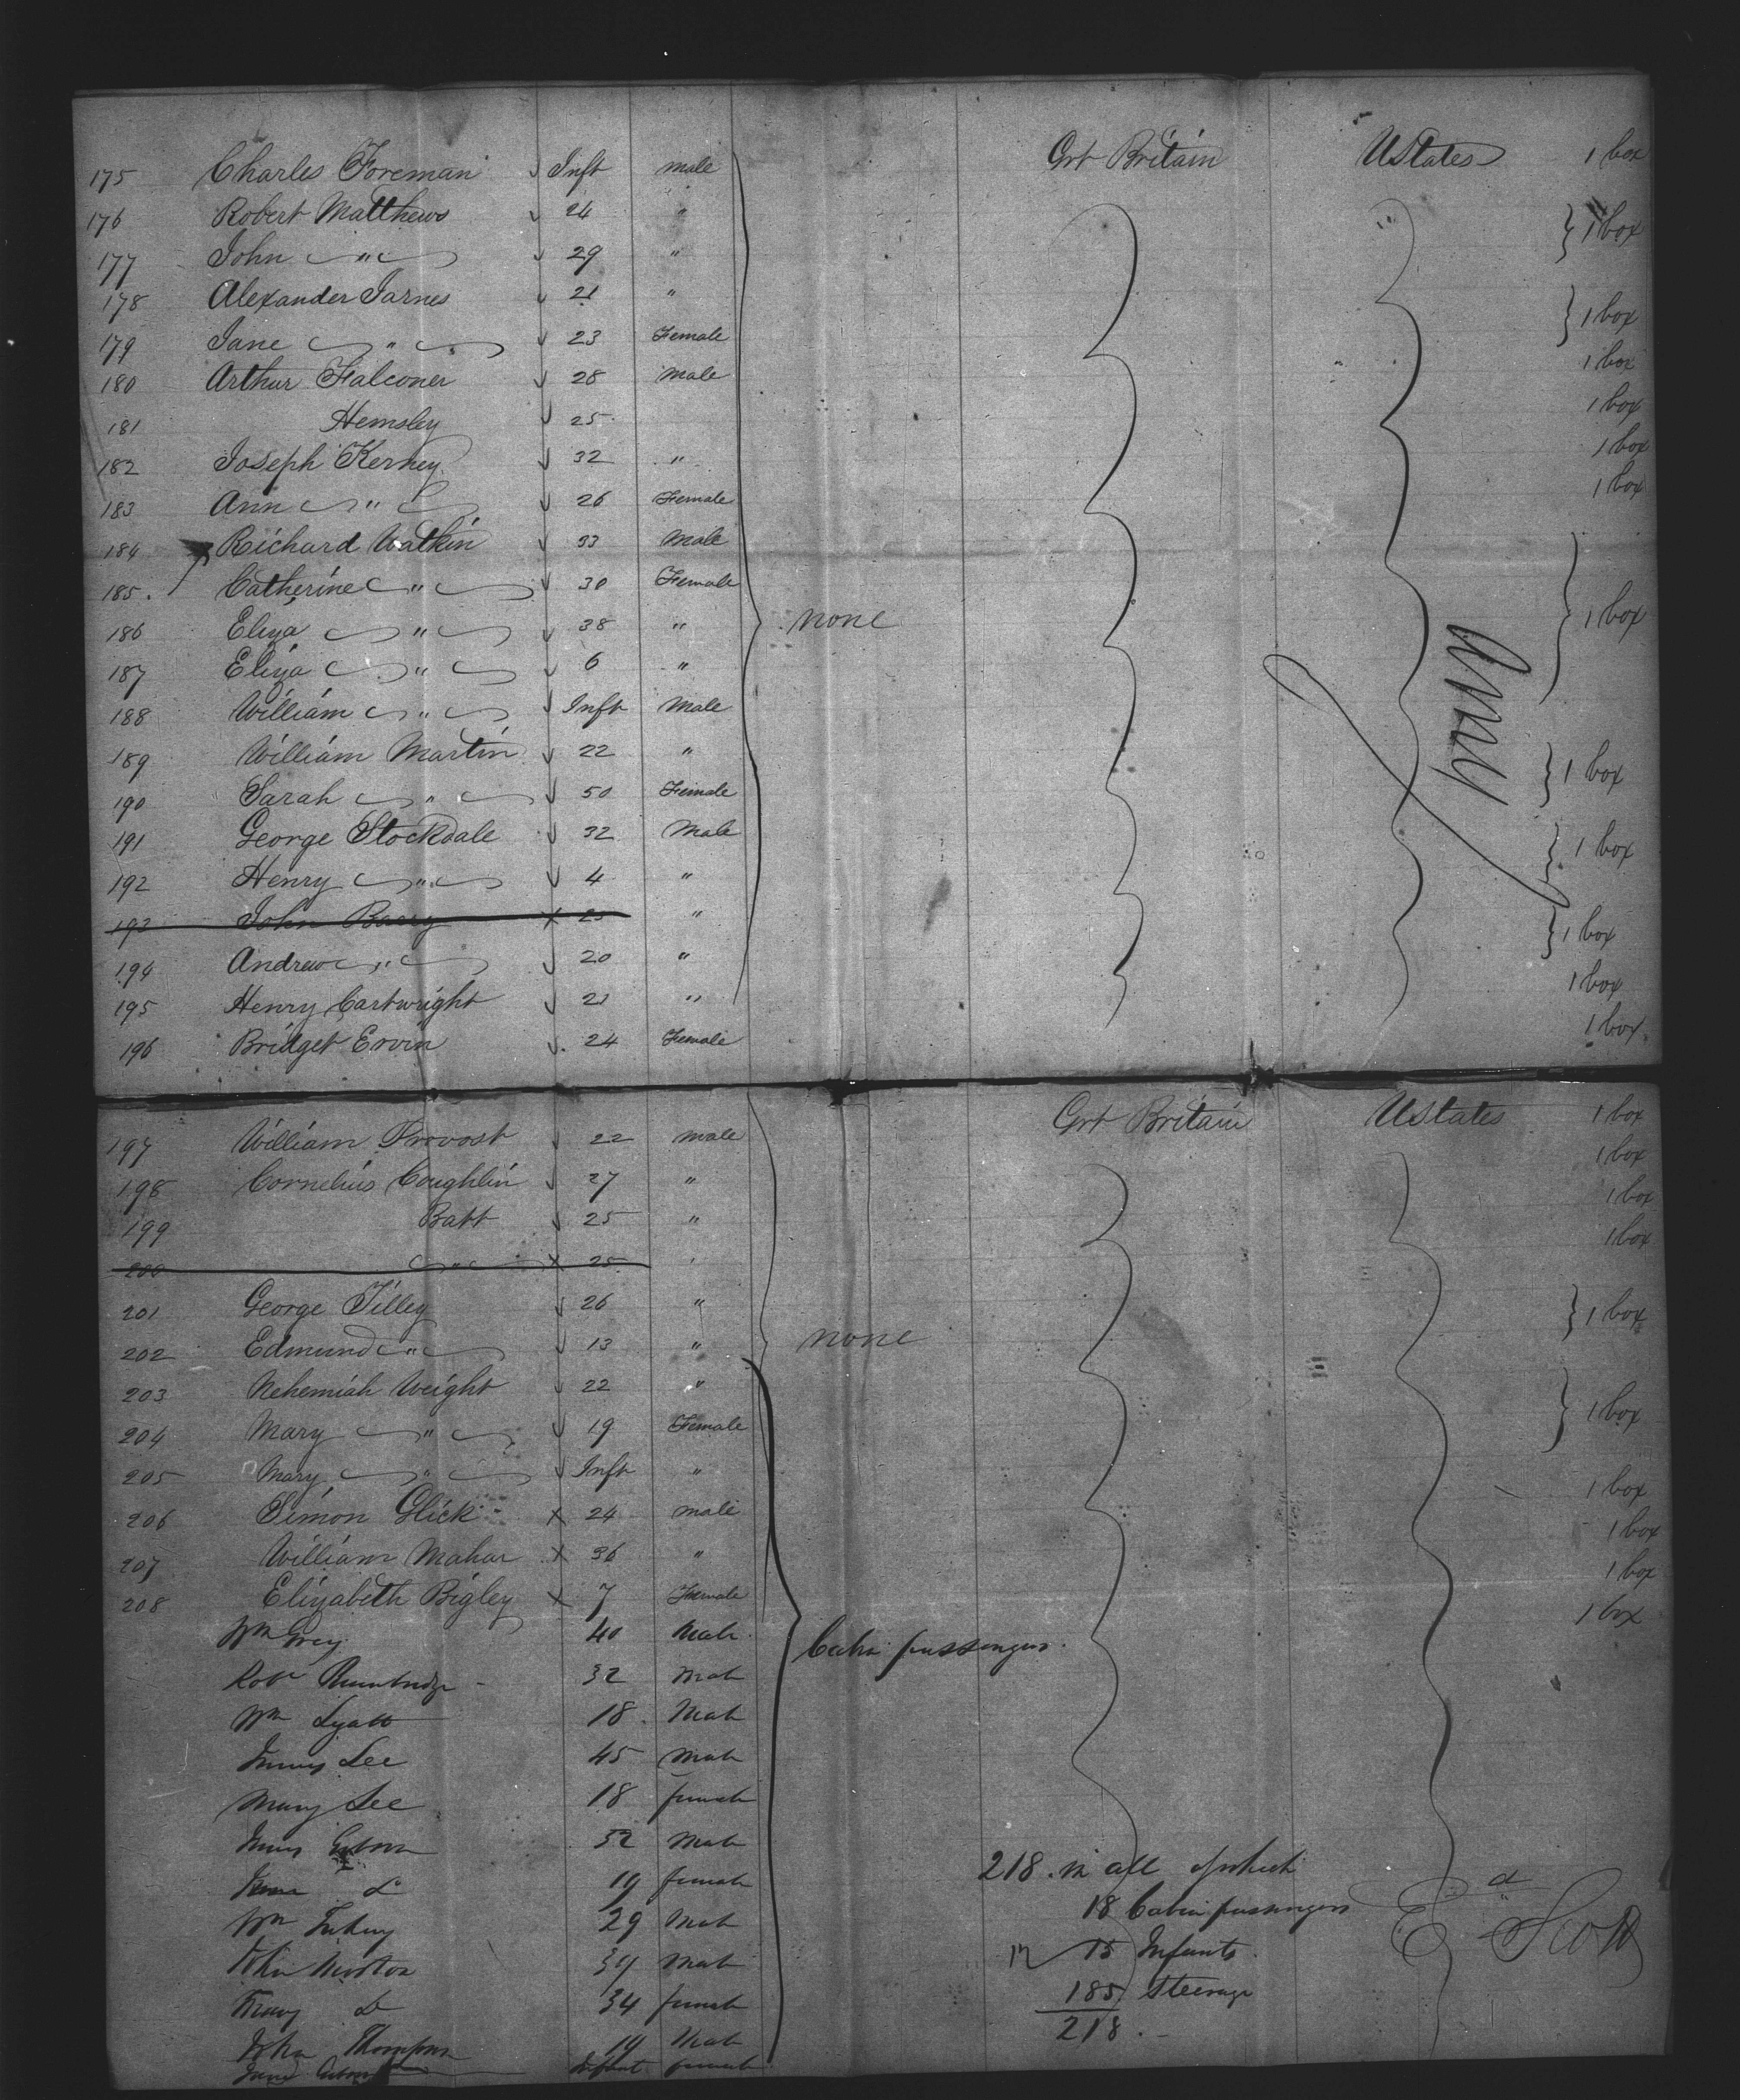 175 Charles Foreman Inft male Grt Britain UStates 1 box
176 Robert Matthews 24 " 1 box
177 John " 29 "
178 Alexander Jarnes 21 " 1 box
179 Jane " 23 Female
180 Arthur Falconer 28 Male 1 box
181 Hemsley 25 1 box
182 Joseph Kerney 32 " 1 box
183 Ann " 26 Female 1 box
184 Richard Watkin 33 Male
185. Catherine " 30 Female
186 Eliza " 38 " none 1 box
187 Eliza " 6 "
188 William " Inft Male
189 William Martin 22 " 1 box
190 Sarah " 50 Female
191 George Stockdale 32 Male 1 box
192 Henry " 4 "
193 John Barry x 25 " 1 box
194 Andrew " 20 "
195 Henry Cartwright 21 " 1 box
196 Bridget Ervin 24 Female 1 box
197 William Provost 22 male Grt Britain UStates 1 box
198 Cornelius Coughlin 27 " 1 box
199 Batt 25 " 1 box
200 " x 25 1 box
201 George Tilley 26 " 1 box
202 Edmund " 13 " none
203 Nehemiah Weight 22 "
204 Mary " 19 Female 1 box
205 Mary " Inft "
206 Simon Glick x 24 male 1 box
207 William Mahar x 36 " 1 box
208 Elizabeth Bigley x 7 Female 1 box
Wm Grey 40 Male Cabin passengers. 1 box
Robt 32 Male
Wm Lyatt 18 Male
James Lee 45 Male
Mary Lee 18 female
James Gibson 32 Male
19 female
Wm 29 Male
John Morton 34 Male
Mary Do 34 female
John Thompson 19 Male
Jane Gibson Infant female
218 in all of which
18 Cabin passengers
15 Infants
185 Steerage
218
Ed Scott